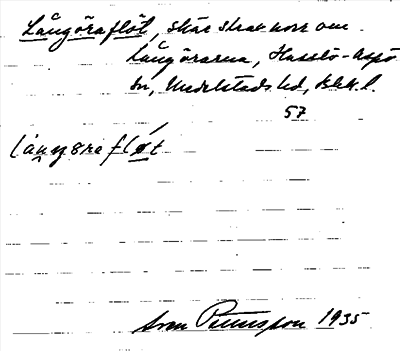 Långöraflöt, skär strax norr om
Långörarna, Hasslö-Aspö
sn, Medelstads hd, Blek. l.
57
långöraflöt
Sven Pettersson 1935